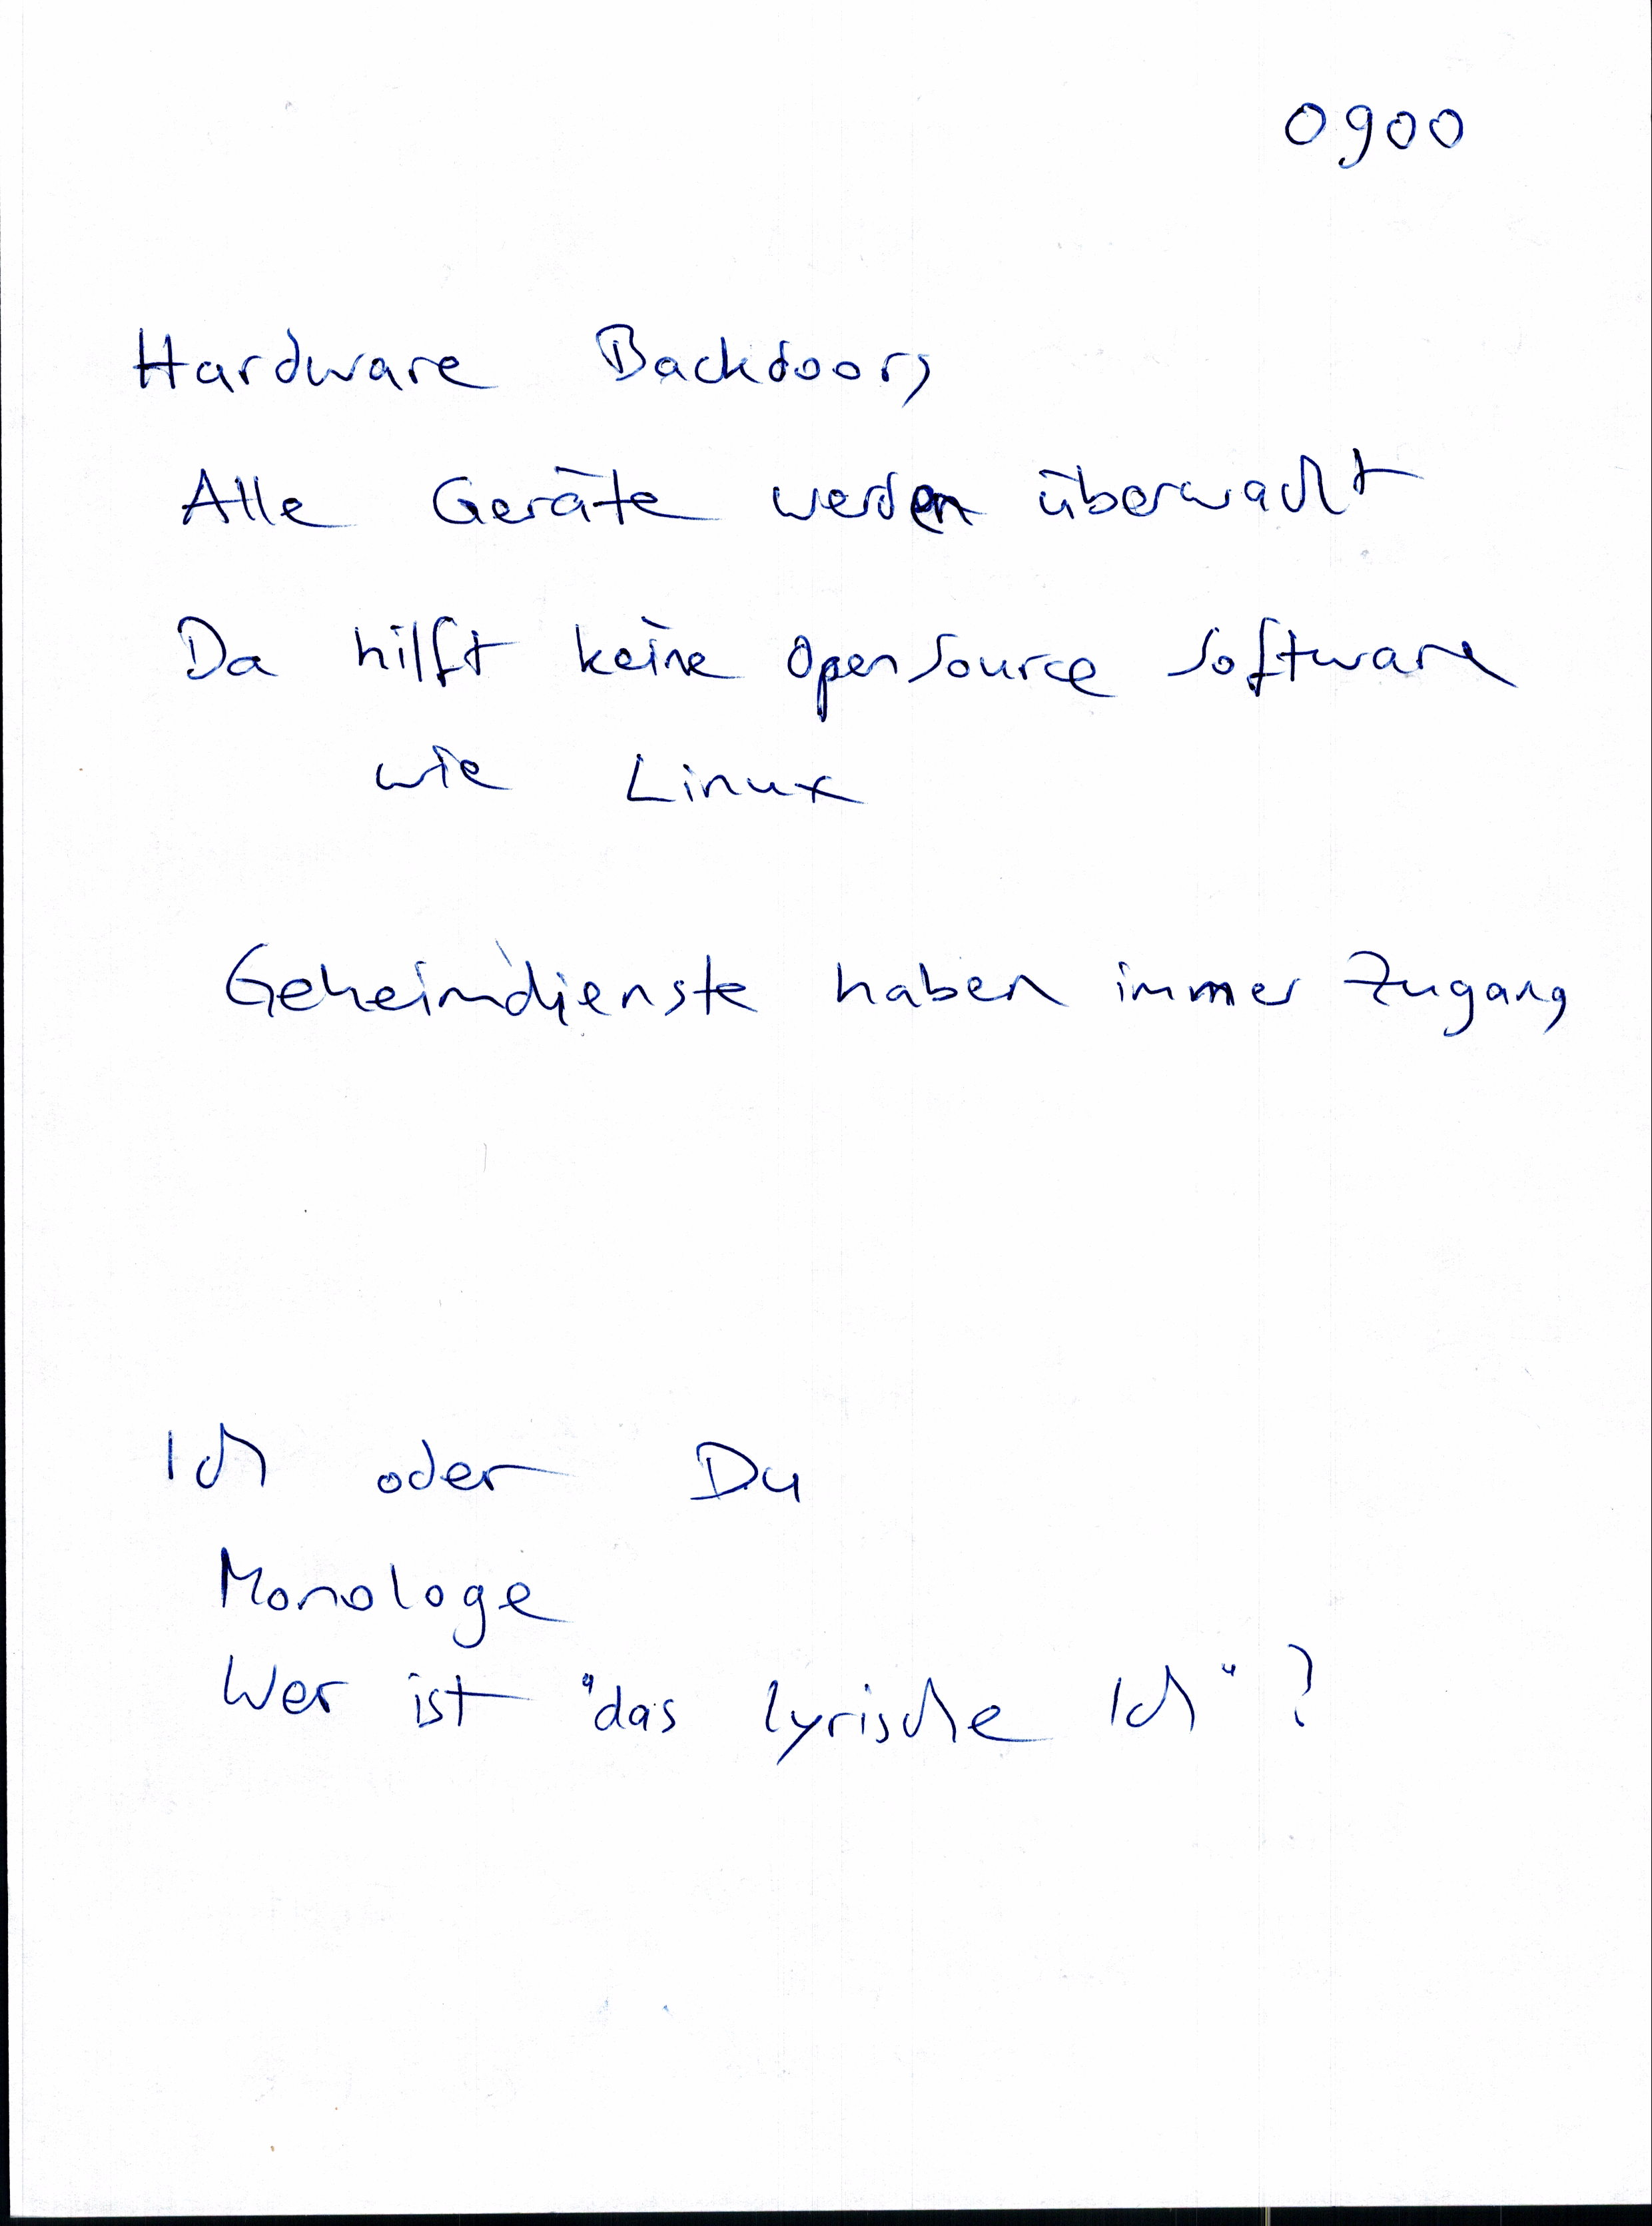 0900
Hardware Backdoors
Alle Geräte werden überwacht
Da hilft keine opensource software
wie Linux
Geheimdienste haben immer Zugang
Ich oder Du
Monologe
Wer ist "das lyrische Ich"?